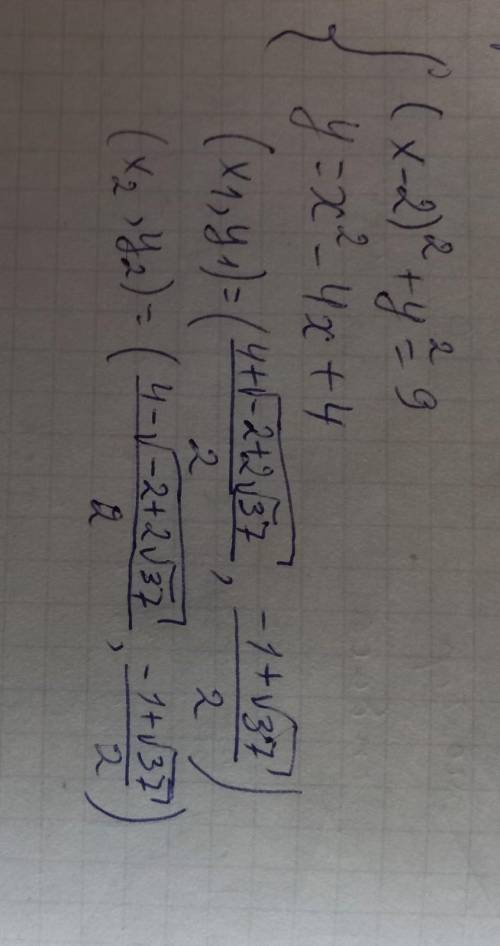 { (x-2)² + y² = 9
y = x² - 4x + 4
(x₁, y₁) = ( (4+√(-2+2√37))/2 , (-1+√37)/2 )
(x₂, y₂) = ( (4-√(-2+2√37))/2 , (-1+√37)/2 )